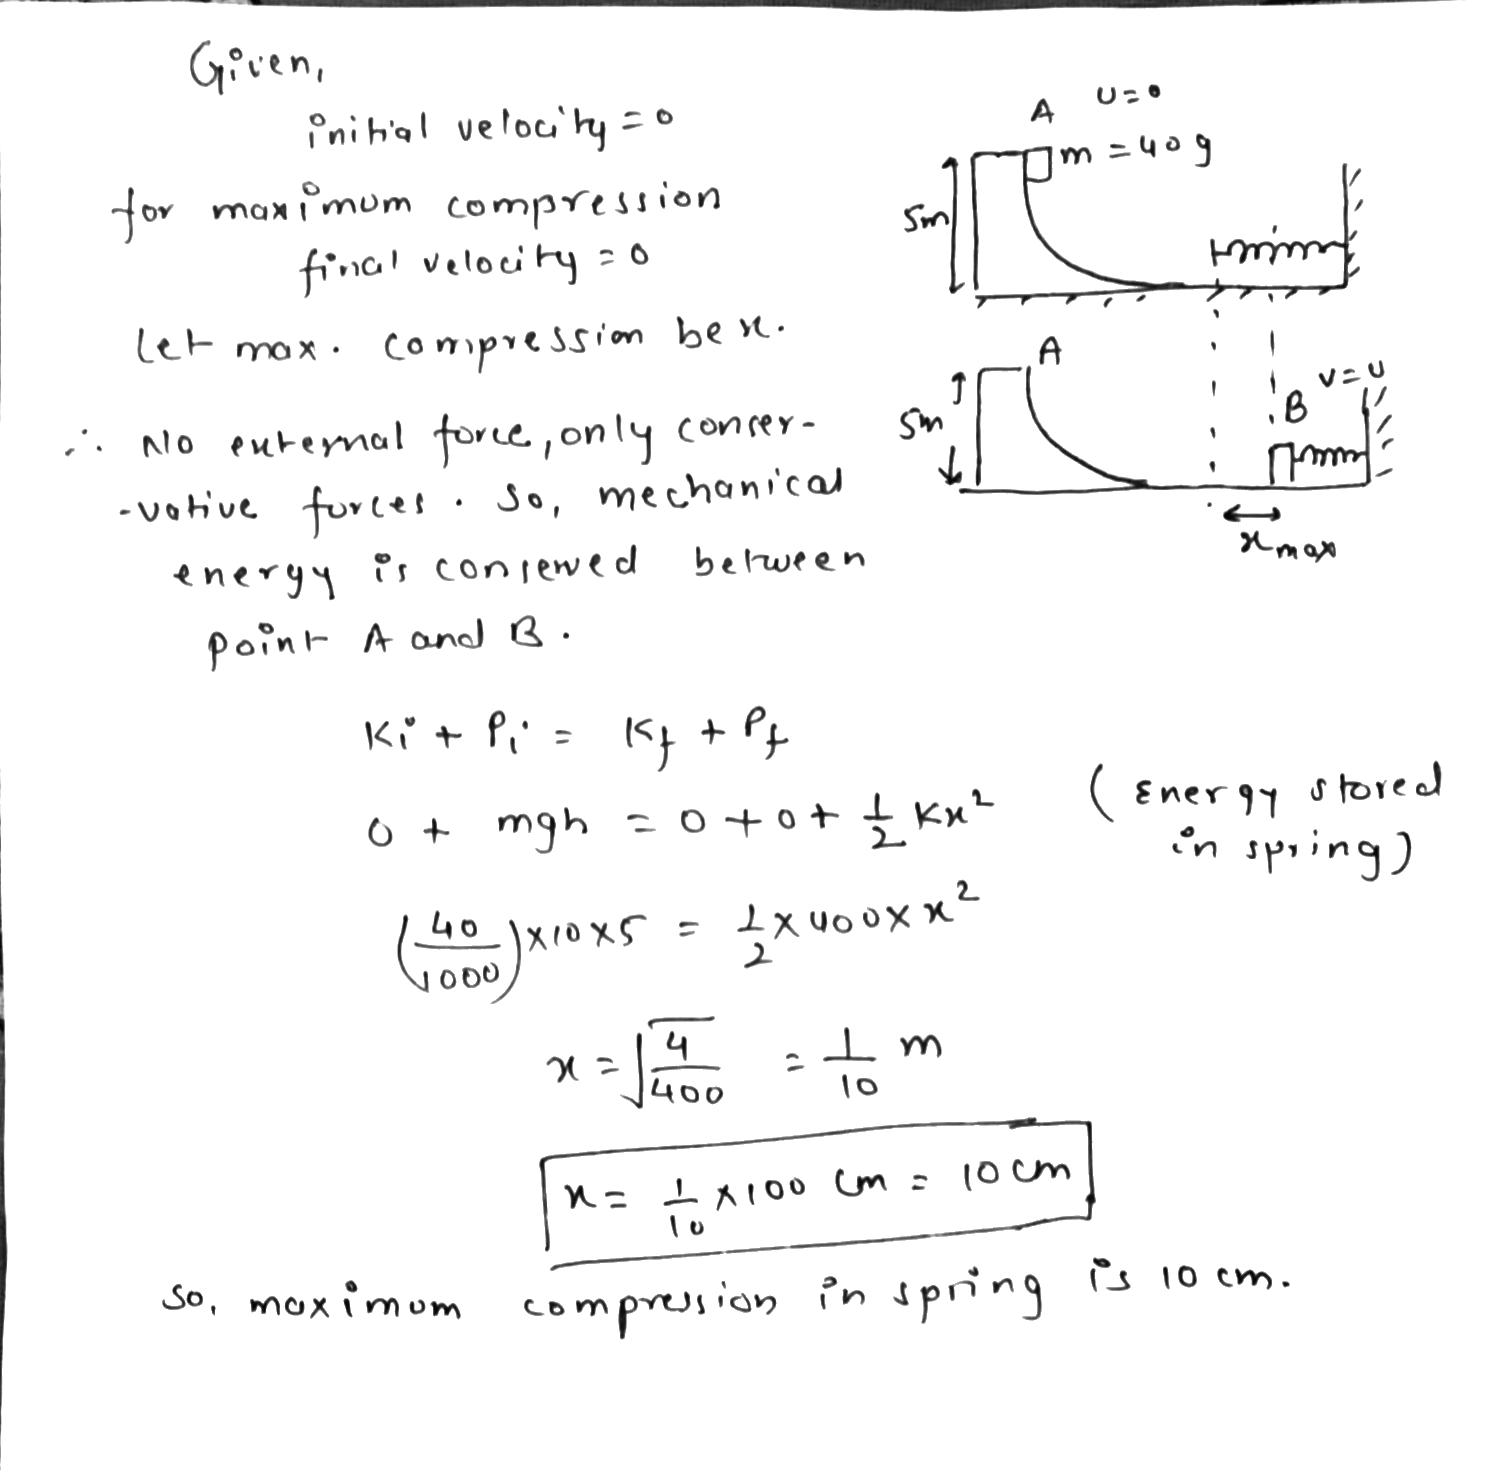 Given,
initial velocity = 0
for maximum compression
final velocity = 0
let max. compression be x.
∴ No external force, only conser-
-vative forces. So, mechanical
energy is conserved between
point A and B.
A U=0
m = 40 g
5m
A
5m
B v=u
xmax
Ki + Pi = Kf + Pf
0 + mgh = 0 + 0 + 1/2 Kx² (Energy stored
in spring)
(40/1000)×10×5 = 1/2×400×x²
x = √(4/400) = 1/10 m
x = 1/10 ×100 cm = 10 cm
So, maximum compression in spring is 10 cm.